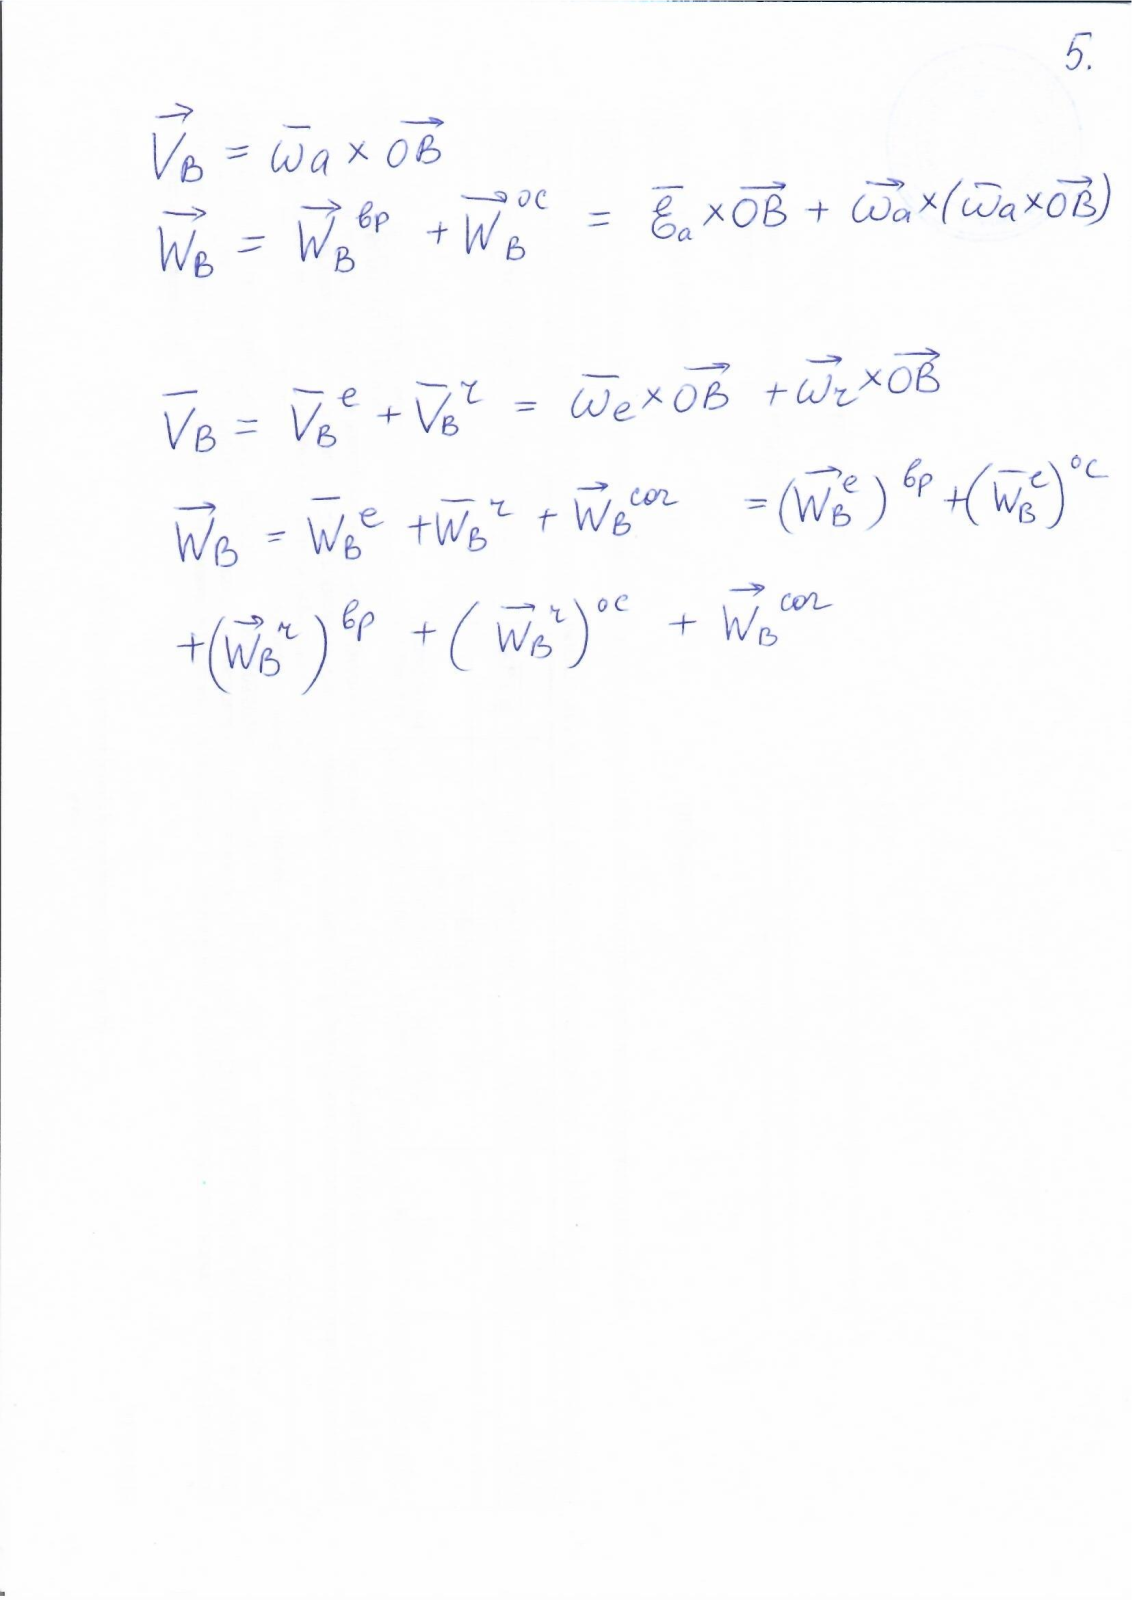 5.
$\overrightarrow{V_B} = \bar{\omega}_a \times \overrightarrow{OB}$
$\overrightarrow{W_B} = \overrightarrow{W_B}^{вр} + \overrightarrow{W_B}^{ос} = \bar{\mathcal{E}}_a \times \overrightarrow{OB} + \overrightarrow{\omega_a} \times (\bar{\omega}_a \times \overrightarrow{OB})$
$\bar{V}_B = \bar{V}_B^{e} + \bar{V}_B^{r} = \bar{\omega}_e \times \overrightarrow{OB} + \overrightarrow{\omega_r} \times \overrightarrow{OB}$
$\overrightarrow{W_B} = \bar{W}_B^{e} + \bar{W}_B^{r} + \overrightarrow{W_B}^{cor} = (\overrightarrow{W_B}^{e})^{вр} + (\bar{W}_B^{e})^{ос}$
$+ (\overrightarrow{W_B}^{r})^{вр} + (\overrightarrow{W_B}^{r})^{ос} + \overrightarrow{W_B}^{cor}$